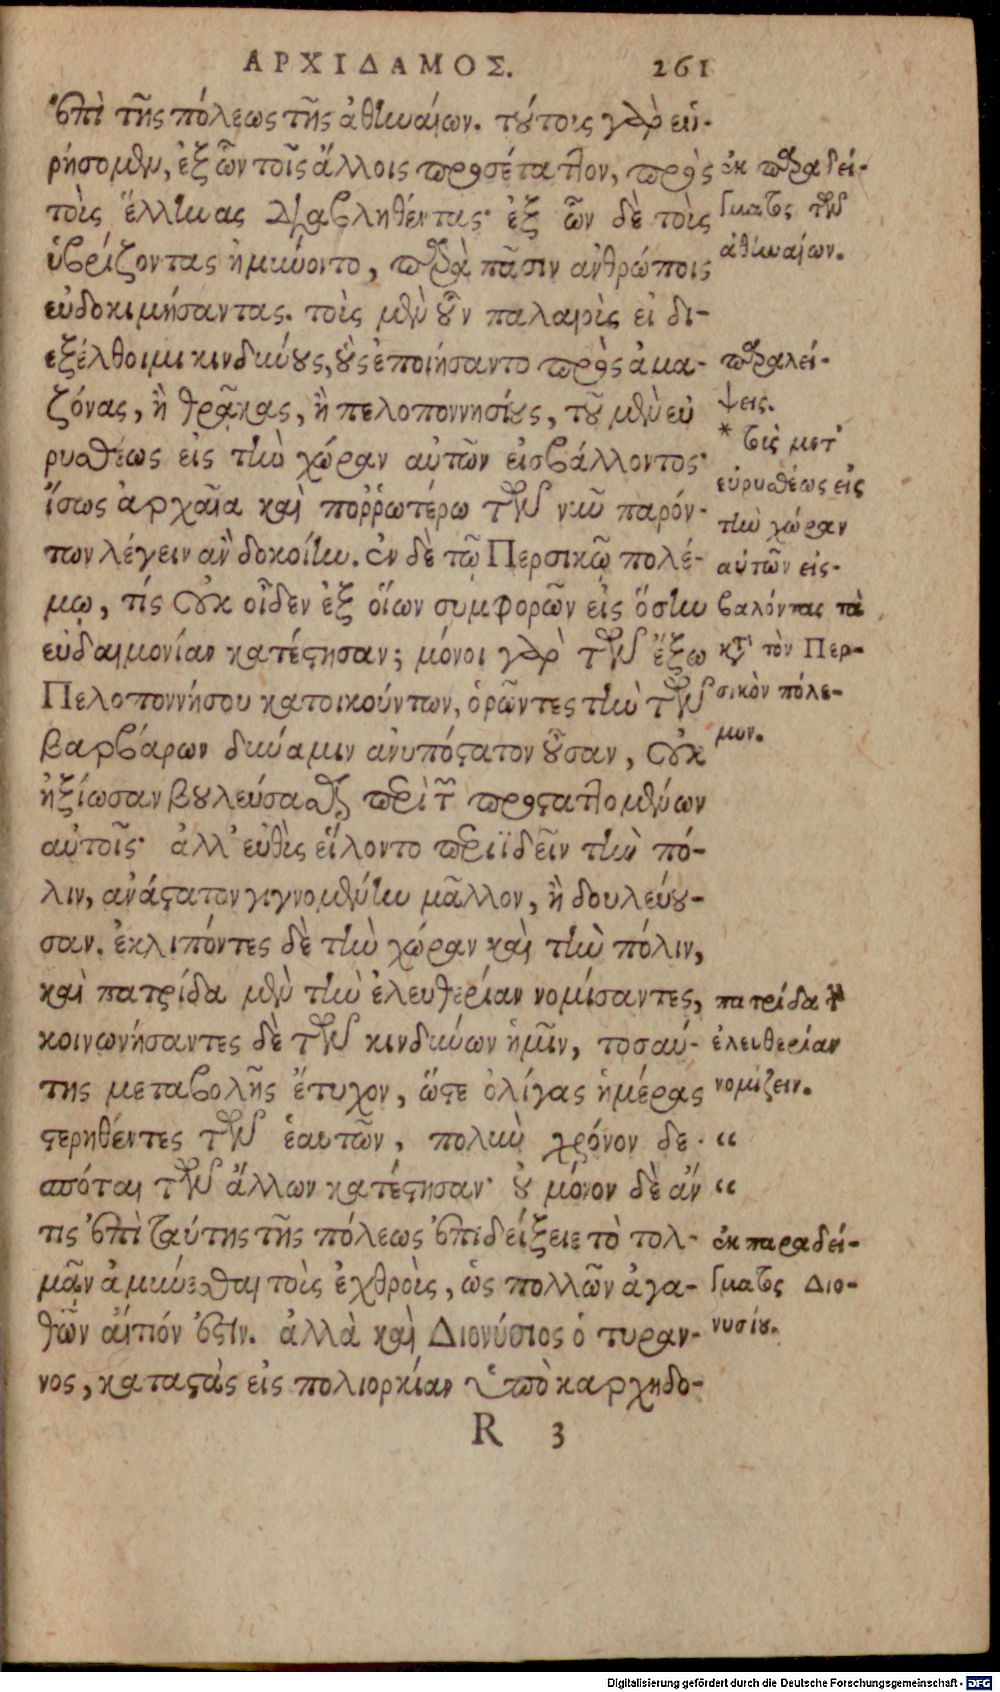 ΑΡΧΙΔΑΜΟΣ. 261
ἐπὶ τῆς πόλεως τῆς ἀθηναίων. τούτοις γὰρ εὑ-
ρήσομεν, ἐξ ὧν τοῖς ἄλλοις προσέταττον, πρὸς
τοὺς ἕλληνας διαβληθέντας· ἐξ ὧν δὲ τοὺς
ὑβρίζοντας ἠμύνοντο, παρὰ πᾶσιν ἀνθρώποις
εὐδοκιμήσαντας. τοὺς μὲν οὖν παλαιοὺς εἰ δι-
εξέλθοιμι κινδύνους, οὓς ἐποιήσαντο πρὸς ἀμα-
ζόνας, ἢ θρᾷκας, ἢ πελοποννησίους, τοῦ μὲν εὐ
ρυσθέως εἰς τὴν χώραν αὐτῶν εἰσβάλλοντος·
ἴσως ἀρχαῖα καὶ ποῤῥωτέρω τῶν νῦν παρόν-
των λέγειν ἂν δοκοίην. ἐν δὲ τῷ Περσικῷ πολέ-
μῳ, τίς οὐκ οἶδεν ἐξ οἵων συμφορῶν εἰς ὅσην
εὐδαιμονίαν κατέστησαν; μόνοι γὰρ τῶν ἔξω
Πελοποννήσου κατοικούντων, ὁρῶντες τὴν τῶν
βαρβάρων δύναμιν ἀνυπόστατον οὖσαν, οὐκ
ἠξίωσαν βουλεύσασθαι περὶ τῶν προσταττομένων
αὐτοῖς· ἀλλ' εὐθὺς εἵλοντο περιϊδεῖν τὴν πό-
λιν, ἀνάστατον γιγνομένην μᾶλλον, ἢ δουλεύου-
σαν. ἐκλιπόντες δὲ τὴν χώραν καὶ τὴν πόλιν,
καὶ πατρίδα μὲν τὴν ἐλευθερίαν νομίσαντες,
κοινωνήσαντες δὲ τῶν κινδύνων ἡμῖν, τοσαύ-
της μεταβολῆς ἔτυχον, ὥστε ὀλίγας ἡμέρας
στερηθέντες τῶν ἑαυτῶν, πολὺν χρόνον δε-
σπόται τῶν ἄλλων κατέστησαν· οὐ μόνον δὲ ἄν
τις ἐπὶ ταύτης τῆς πόλεως ἐπιδείξειε τὸ τολ-
μᾶν ἀμύνεσθαι τοὺς ἐχθροὺς, ὡς πολλῶν ἀγα-
θῶν αἴτιόν ἐστιν. ἀλλὰ καὶ Διονύσιος ὁ τύραν-
νος, καταστὰς εἰς πολιορκίαν ὑπὸ καρχηδο-
R 3
ἐκ παραδεί-
γματος τῶν
ἀθηναίων.
παραλεί-
ψεις.
* τοὺς μετ'
εὐρυσθέως εἰς
τὴν χώραν
αὐτῶν εἰσ-
βαλόντας τὰ
κτ' τὸν Περ-
σικὸν πόλε-
μον.
πατρίδα τὴν
ἐλευθερίαν
νομίζειν.
“
“
ἐκ παραδεί-
γματος Διο-
νυσίου.
Digitalisierung gefördert durch die Deutsche Forschungsgemeinschaft - DFG